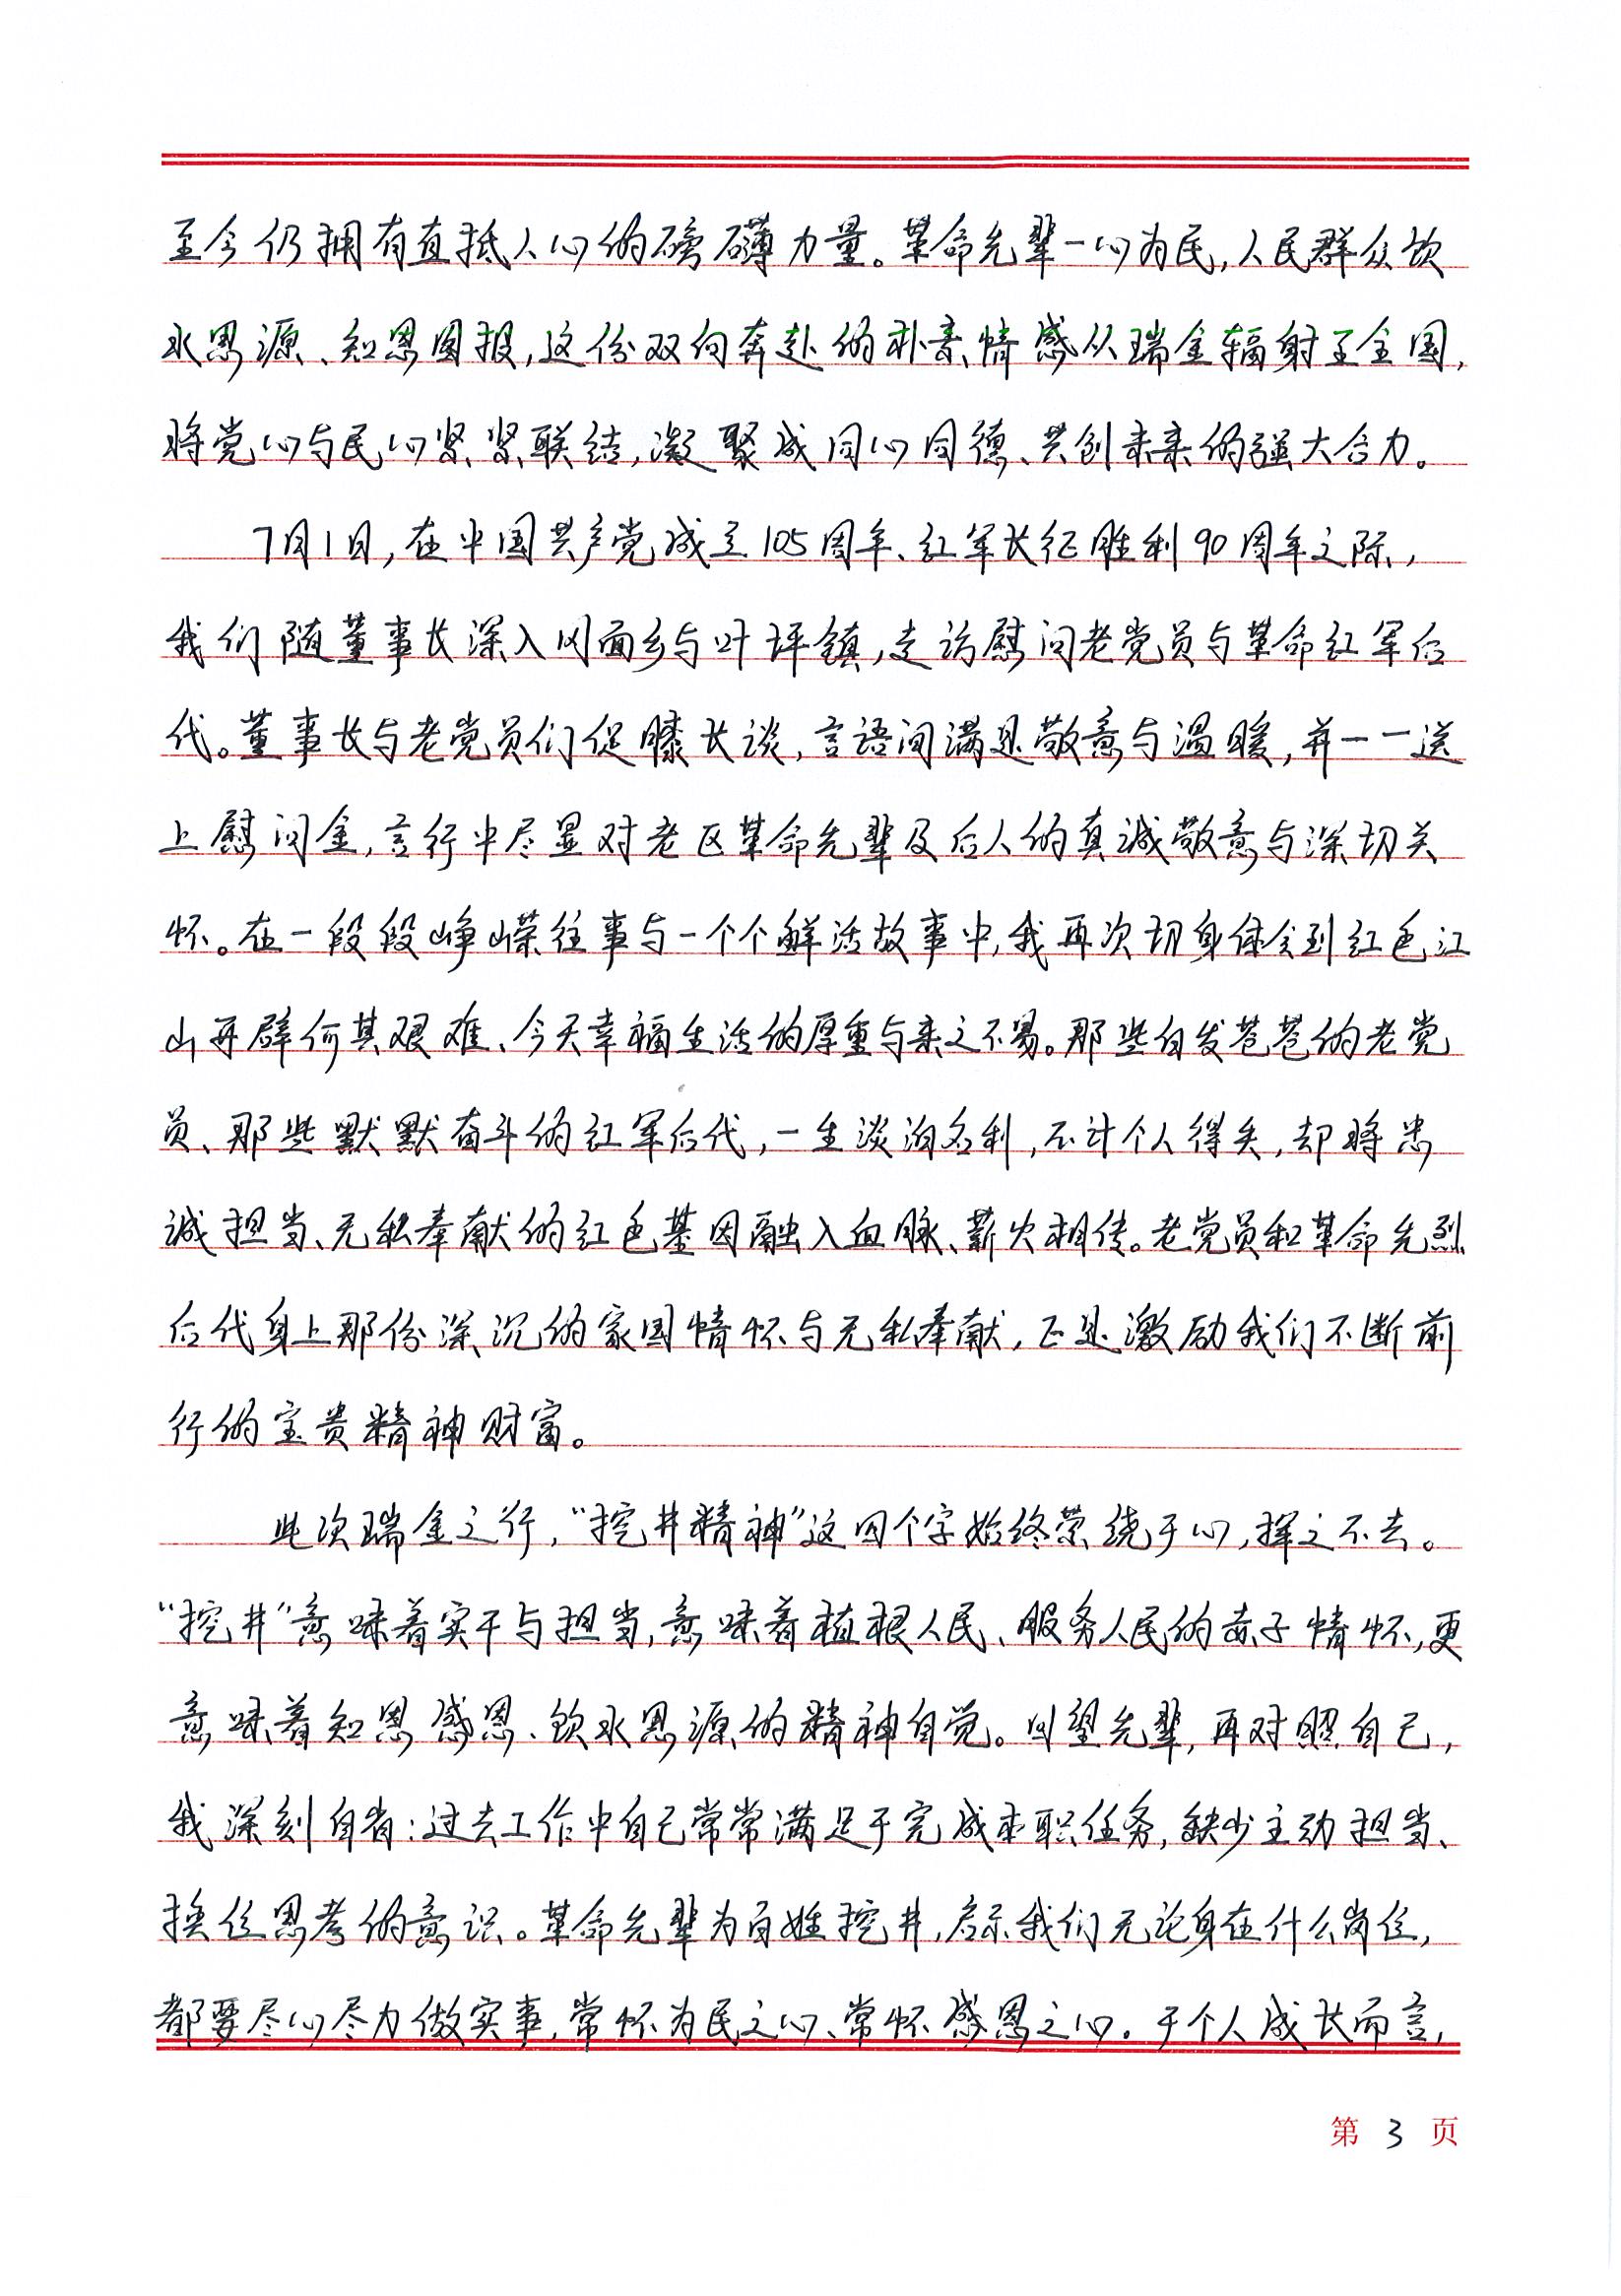 至今仍拥有直抵人心的磅礴力量。革命先辈一心为民，人民群众饮
水思源、知恩图报，这份双向奔赴的朴素情感从瑞金辐射至全国，
将党心与民心紧紧联结，凝聚成同心同德、共创未来的强大合力。
7月1日，在中国共产党成立105周年、红军长征胜利90周年之际，
我们随董事长深入冈面乡与叶坪镇，走访慰问老党员与革命红军后
代。董事长与老党员们促膝长谈，言语间满是敬意与温暖，并一一送
上慰问金，言行中尽显对老区革命先辈及后人的真诚敬意与深切关
怀。在一段段峥嵘往事与一个个鲜活故事中，我再次切身体会到红色江
山再辟何其艰难、今天幸福生活的厚重与来之不易。那些白发苍苍的老党
员、那些默默奋斗的红军后代，一生淡泊名利，不计个人得失，却将忠
诚担当、无私奉献的红色基因融入血脉、薪火相传。老党员和革命先烈
后代身上那份深沉的家国情怀与无私奉献，正是激励我们不断前
行的宝贵精神财富。
此次瑞金之行，“挖井精神”这四个字始终萦绕于心，挥之不去。
“挖井”意味着实干与担当，意味着植根人民、服务人民的赤子情怀，更
意味着知恩感恩、饮水思源的精神自觉。回望先辈，再对照自己，
我深刻自省：过去工作中自己常常满足于完成本职任务，缺少主动担当、
换位思考的意识。革命先辈为百姓挖井，启示我们无论身在什么岗位，
都要尽心尽力做实事，常怀为民之心、常怀感恩之心。于个人成长而言，
第 3 页